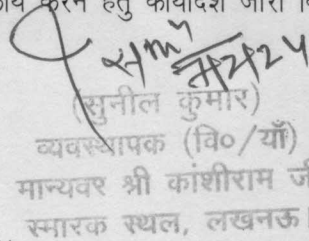 कार्य करने हेतु कार्यादेश जारी
(सुनील कुमार)
व्यवस्थापक (वि०/याँ)
मान्यवर श्री कांशीराम जी
स्मारक स्थल, लखनऊ